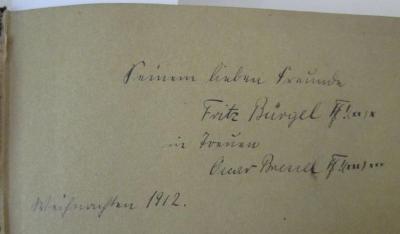 Seinem lieben Freunde
Fritz Bürgel
in Treuen
Oscar
Weihnachten 1912.